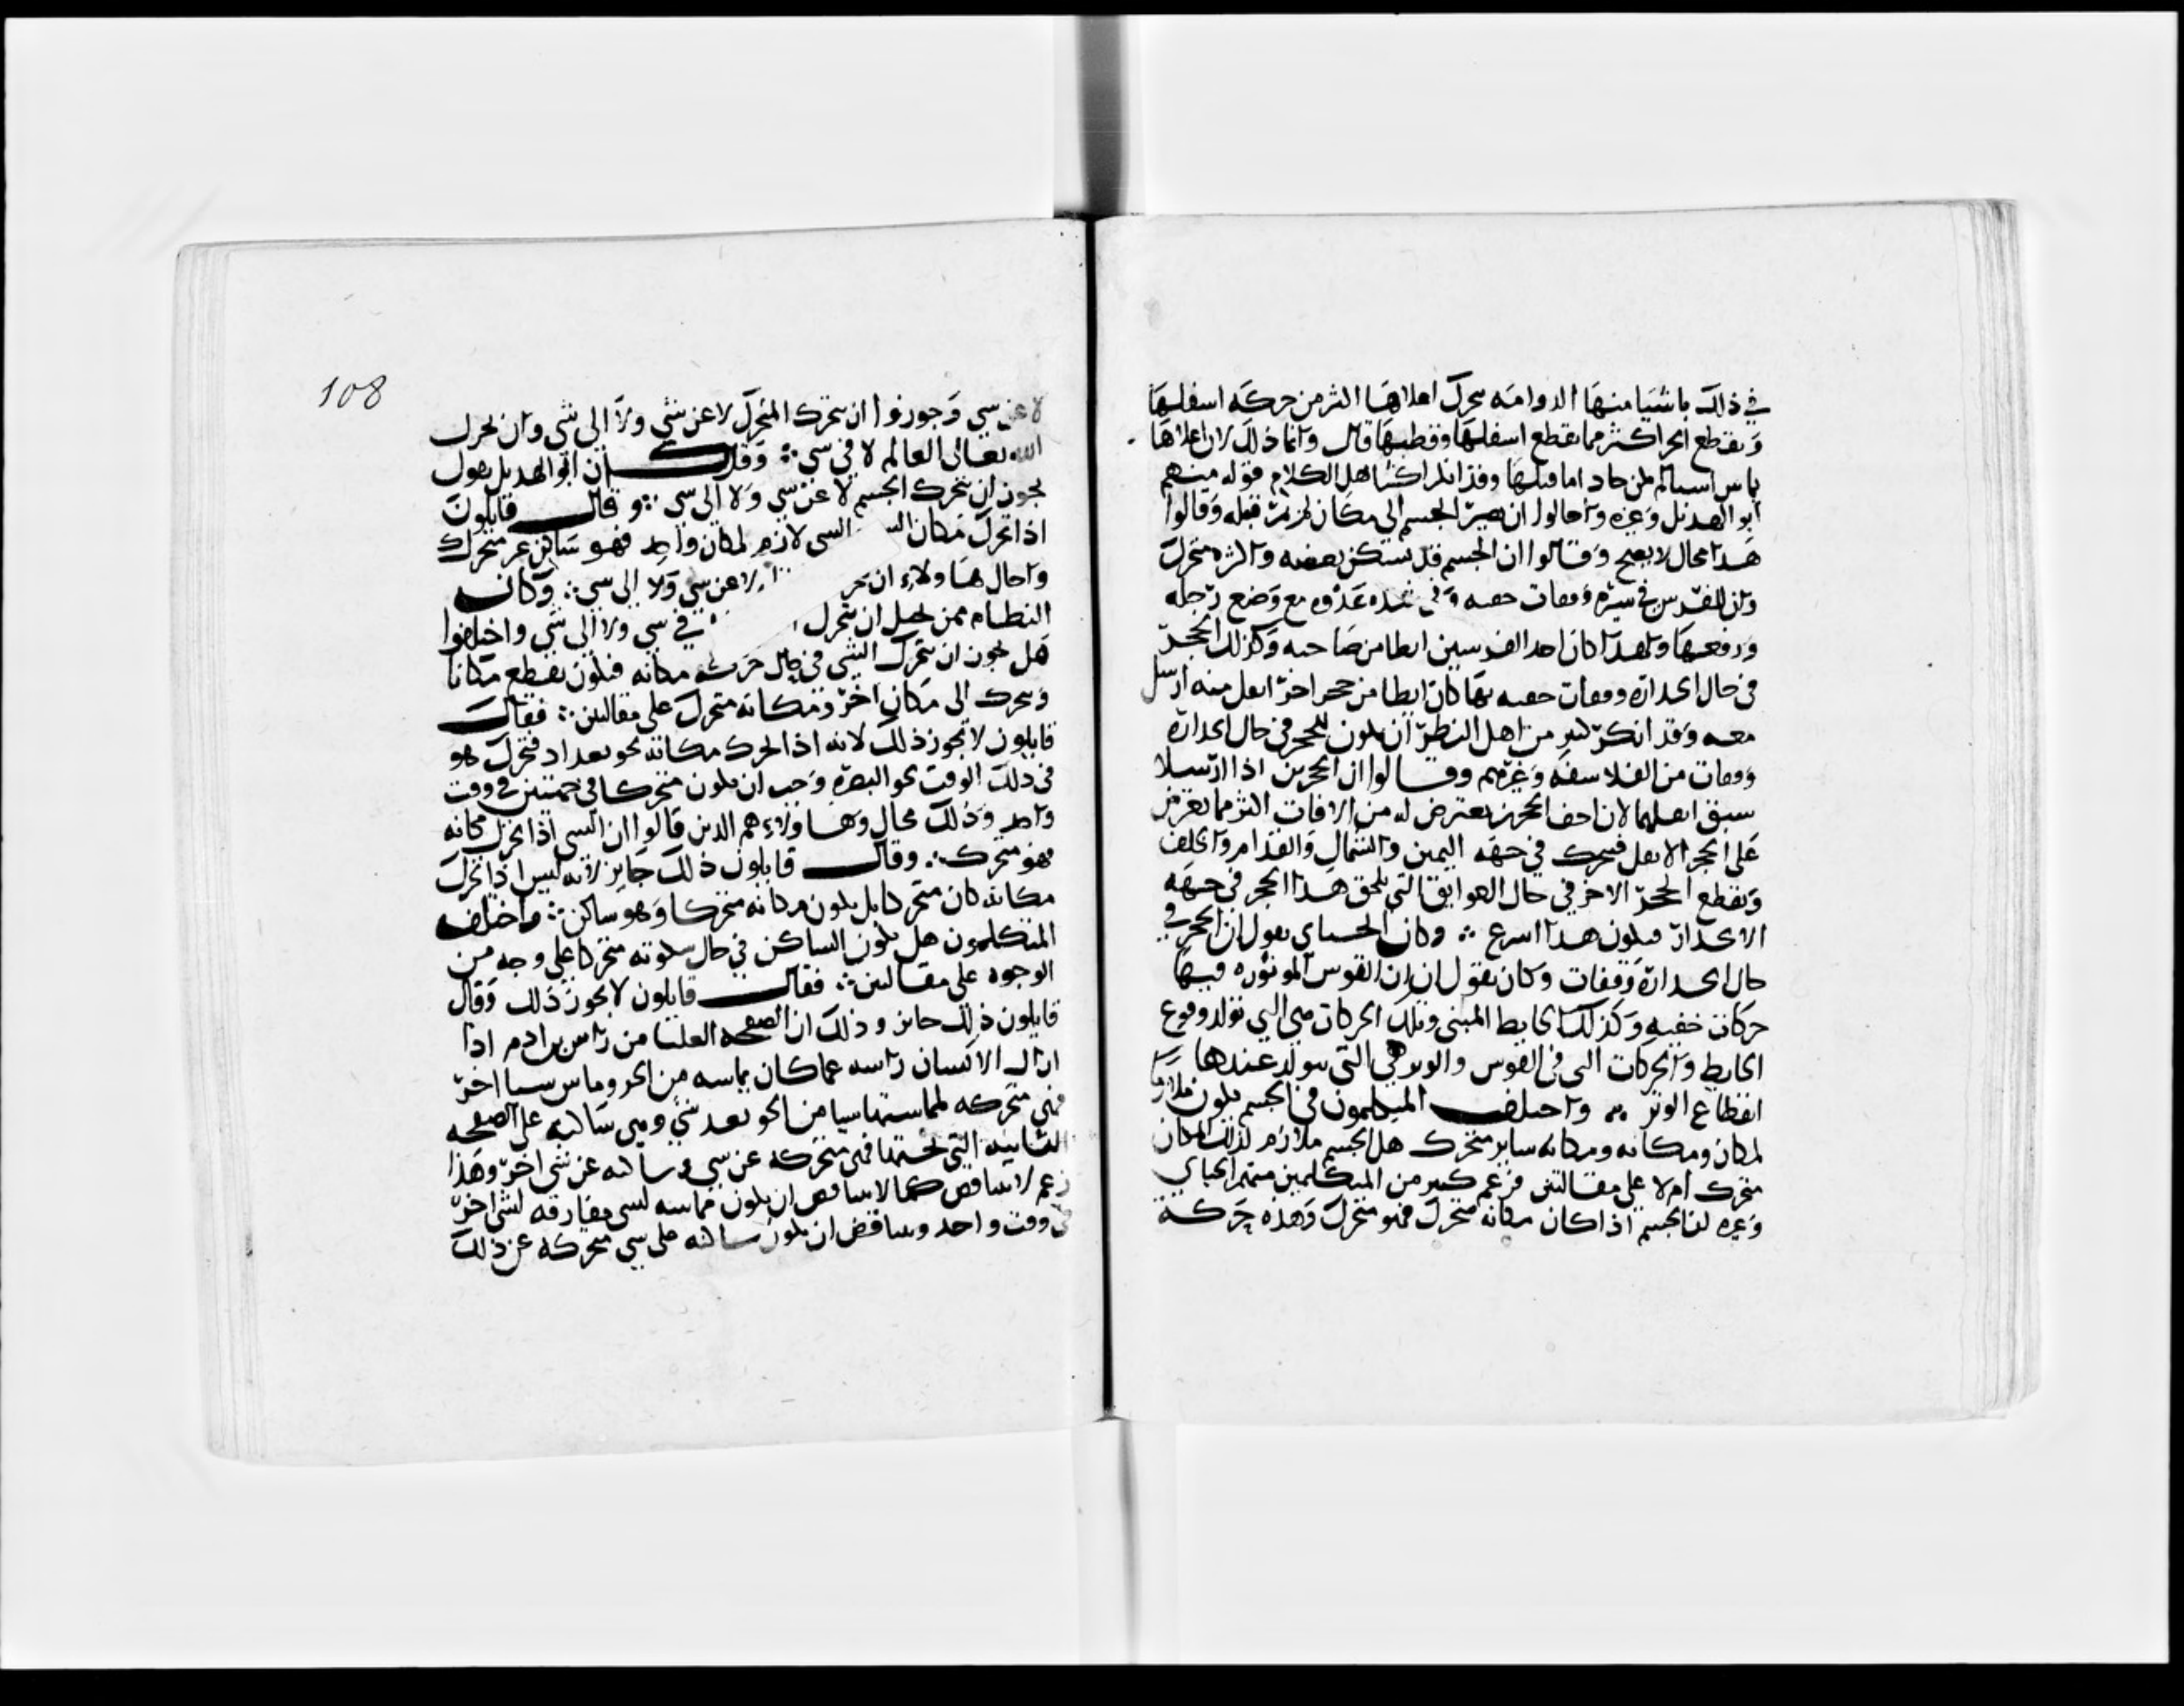 في ذلك باشيا منها الدوامه يتحرك اعلاها اكثر من حركه اسفلها
ويقطع الحز اكثر مما يقطع اسفلها وقطبها قال وانما ذلك لان اعلاها
يماس اشيا لم يكن حاذا ما قبلها وقد انكر اكثر اهل الكلام قوله منهم
ابو الهذيل وغيره واحالوا ان يصير الجسم الى مكان لم يمر قبله وقالوا
هذا محال لا يصح وقالوا ان الجسم قد يسكن بعضه واكثره متحرك
وان للفرس في سيره وقفات خفيه وفي شده عدوه مع وضع رجله
ورفعها ولهذا كان احد الفرسين ابطا من صاحبه وكذلك الحجر
في حال انحداره وقفات خفيه بها كان ابطا من حجر اخر اثقل منه ارسل
معه وقد انكر كثير من اهل النظر ان يكون للحجر في حال انحداره
وقفات من الفلاسفه وغيرهم وقالوا ان الحجرين اذا ارسلا
سبق اثقلهما لان اخف الحجرين يعترض له من الافات اكثر مما يعترض
على الحجر الاثقل فيتحرك في جهه اليمين والشمال والقدام والخلف
ويقطع الحجر الاخر في حال العوايق التي تلحق هذا الحجر في جهه
الانحدار فيكون هذا اسرع ∴ وكان الجباي يقول ان الحجر في
حال انحداره وقفات وكان يقول ان القوس الموتوره فيها
حركات خفيه وكذلك الحايط المبنى وتلك الحركات هي التي تولد وقوع
الحايط والحركات التي في القوس والوتر هي التي يتولد عندها
انقطاع الوتر ∴ واختلف المتكلمون في الجسم يكون ملازما
لمكان ومكانه ومكانه ساير متحرك هل الجسم ملازم لذلك المكان
متحرك ام لا على مقالتين فزعم كثير من المتكلمين منهم الجباي
وغيره ان الجسم اذا كان مكانه متحرك فهو متحرك وهذه حركة
108
لا عن شي وجوزوا ان يتحرك المتحرك لا عن شي ولا الى شي وان يحرك
الله تعالى العالم لا في شي ∴ وقد ان ابو الهذيل يقول
يجوز ان يتحرك الجسم لا عن شي ولا الى شي ∴ وقال قايلون
اذا تحرك مكان الشي لازم لمكان واحد فهو ساكن غير متحرك
واحال هاولاء ان لا عن شي ولا الى شي ∴ وكان
النظام ممن يحيل ان يتحرك في شي ولا الى شي واختلفوا
هل يجوز ان يتحرك الشي في حال حركه مكانه فيكون يقطع مكانا
ويتحرك الى مكان اخر ومكانه متحرك على مقالتين ∴ فقال
قايلون لا يجوز ذلك لانه اذا تحرك مكانه نحو بغداد فتحرك هو
في ذلك الوقت نحو البصره وجب ان يكون متحركا في جهتين في وقت
واحد وذلك محال وهاولاء هم الذين قالوا ان الشي اذا تحرك مكانه
فهو متحرك ∴ وقال قايلون ذلك جايز لانه ليس اذا تحرك
مكانه كان متحركا بل يكون مكانه متحركا وهو ساكن ∴ واختلف
المتكلمون هل يكون الساكن في حال سكونه متحركا على وجه من
الوجوه على مقالتين ∴ فقال قايلون لا يجوز ذلك وقال
قايلون ذلك جايز وذلك ان الصفحه العليا من راس بن ادم اذا
ازال الانسان راسه عما كان يماسه من الجو وماس شيا اخر
فهي متحركه لمماستها شيا من الجو بعد شي وهي ساكنه على الصفحه
الثانيه التي تحتها فهي متحركه عن شي وساكنه عن شي اخر وهذا
زعم لا يتناقض كما لا يتناقض ان يكون مماسه لشي مفارقه لشي اخر
في وقت واحد ويتناقض ان يكون ساكنه على شي متحركه عن ذلك